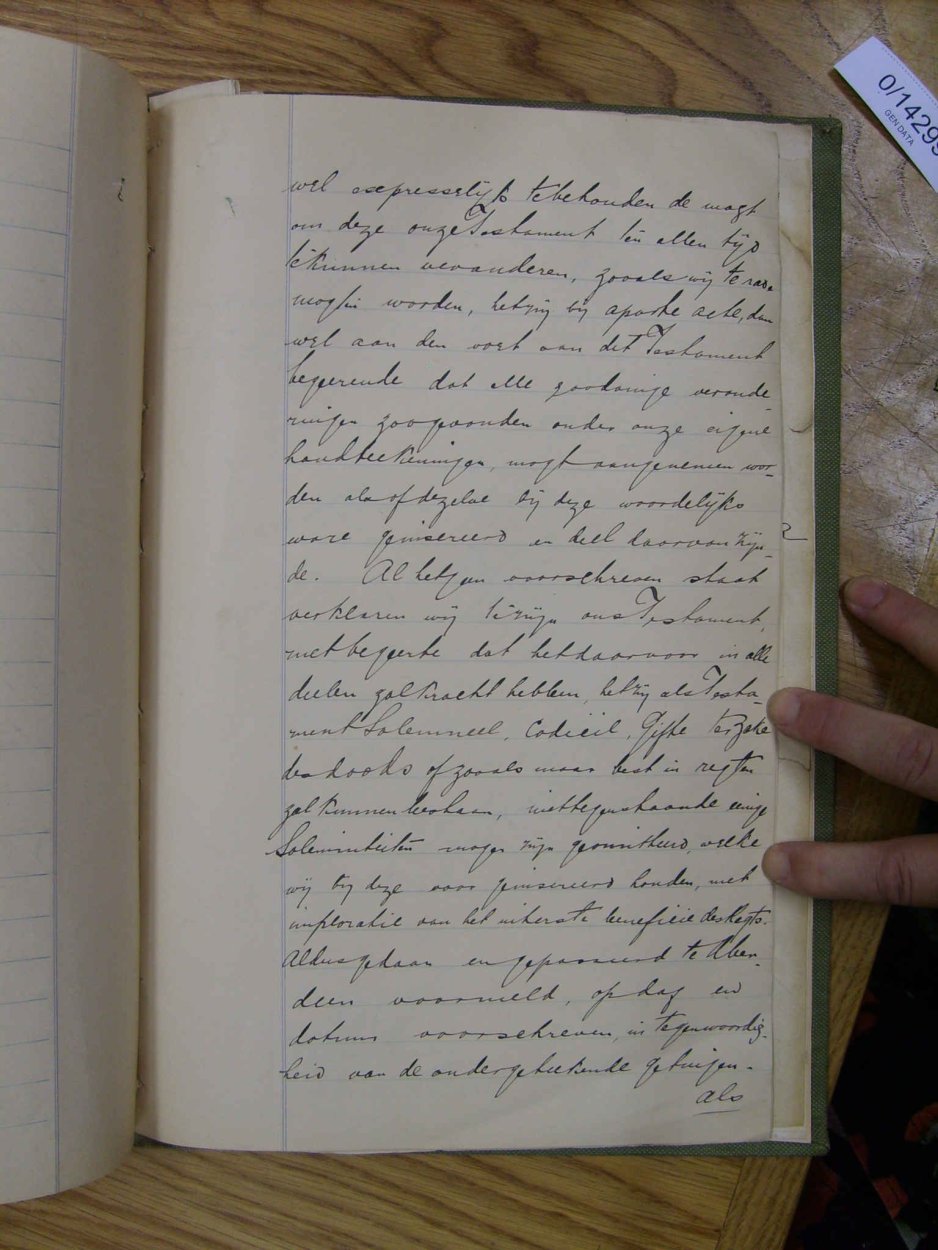 wel expresselijk te behouden de magt
om deze onze Testament ten allen tijd
te kunnen veranderen, zooals wij te rade
mogten worden, het zij bij aparte acte, dan
wel aan den voet van dit Testament
begeerende dat alle zoodanige verande-
ringen zoogevonden onder onze eigene
handteekeningen, mogt aangenomen wor-
den als of dezelve bij deze woordelijks
ware geinsereerd en deel daarvan zijn-
de. Al hetgeen voorschreven staat
verklaren wij te zijn ons Testament,
met begeerte dat het daarvoor in alle
deelen zal kracht hebben, het zij als Testa-
ment Solemneel, Codicil, Gifte terzake
des doods of zooals maar best in regten
zal kunnen bestaan, niettegenstaande eenige
Solemniteiten mogen zijn geomitteerd, welke
wij bij deze voor geinsereerd houden, met
imploratie van het uiterste beneficie des Regts.
Aldus gedaan en gepasseerd te Aber-
deen voormeld, op dag en
datum voorschreven, in tegenwoordig-
heid van de ondergeteekende getuigen.
als
2
0/14299
GEN DATA